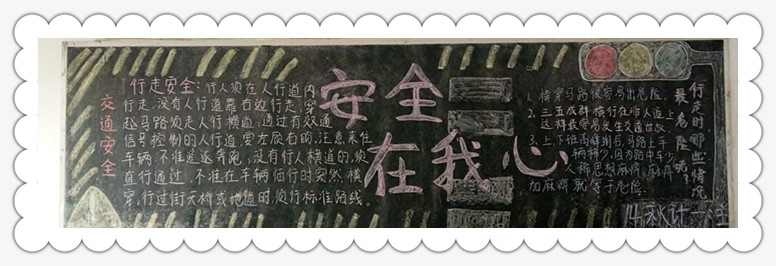 交通安全
行走安全:行人须在人行道内
行走,没有人行道靠右边行走,穿
越马路须走人行横道,通过有交通
信号控制的人行道,要左顾右盼,注意来往
车辆,不准追逐奔跑,没有行人横道的,须
直行通过,不准在车辆临行时突然横
穿,行过街天桥或地道时,须行标准路线。
安全
在我心
行走时哪些情况
最危险呢?
1、横穿马路很容易出危险,
2、三五成群横行在非人道上
这样最容易发生交通
3、上、下班高峰刚后,马路上车
辆稀少,因为路中车少
人稀思想麻痹,麻痹
加麻痹就等于危险.
14秋计一